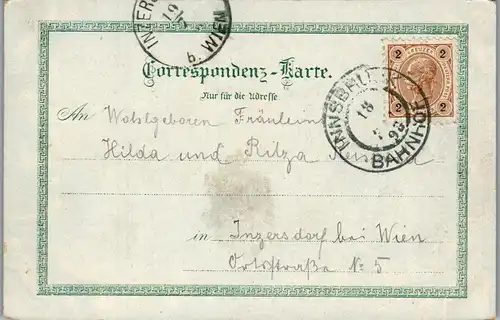 INZERS
19/5
b. WIEN
Correspondenz-Karte.
Nur für die Adresse
2 2
2 2
INNSBRUCK
18
5
98
BAHNHOF
An Wohlgeboren Fräulein
Hilda und Ritza
in Inzersdorf bei Wien
Ortsstraße No 5